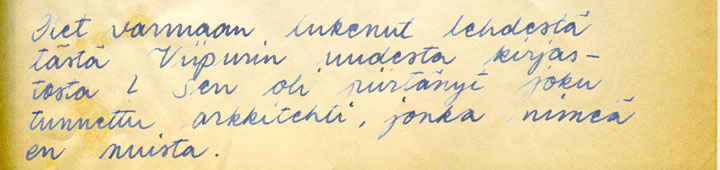 Olet varmaan lukenut lehdestä
tästä Viipurin uudesta kirjas-
tosta? Sen oli piirtänyt joku
tunnettu arkkitehti, jonka nimeä
en muista.